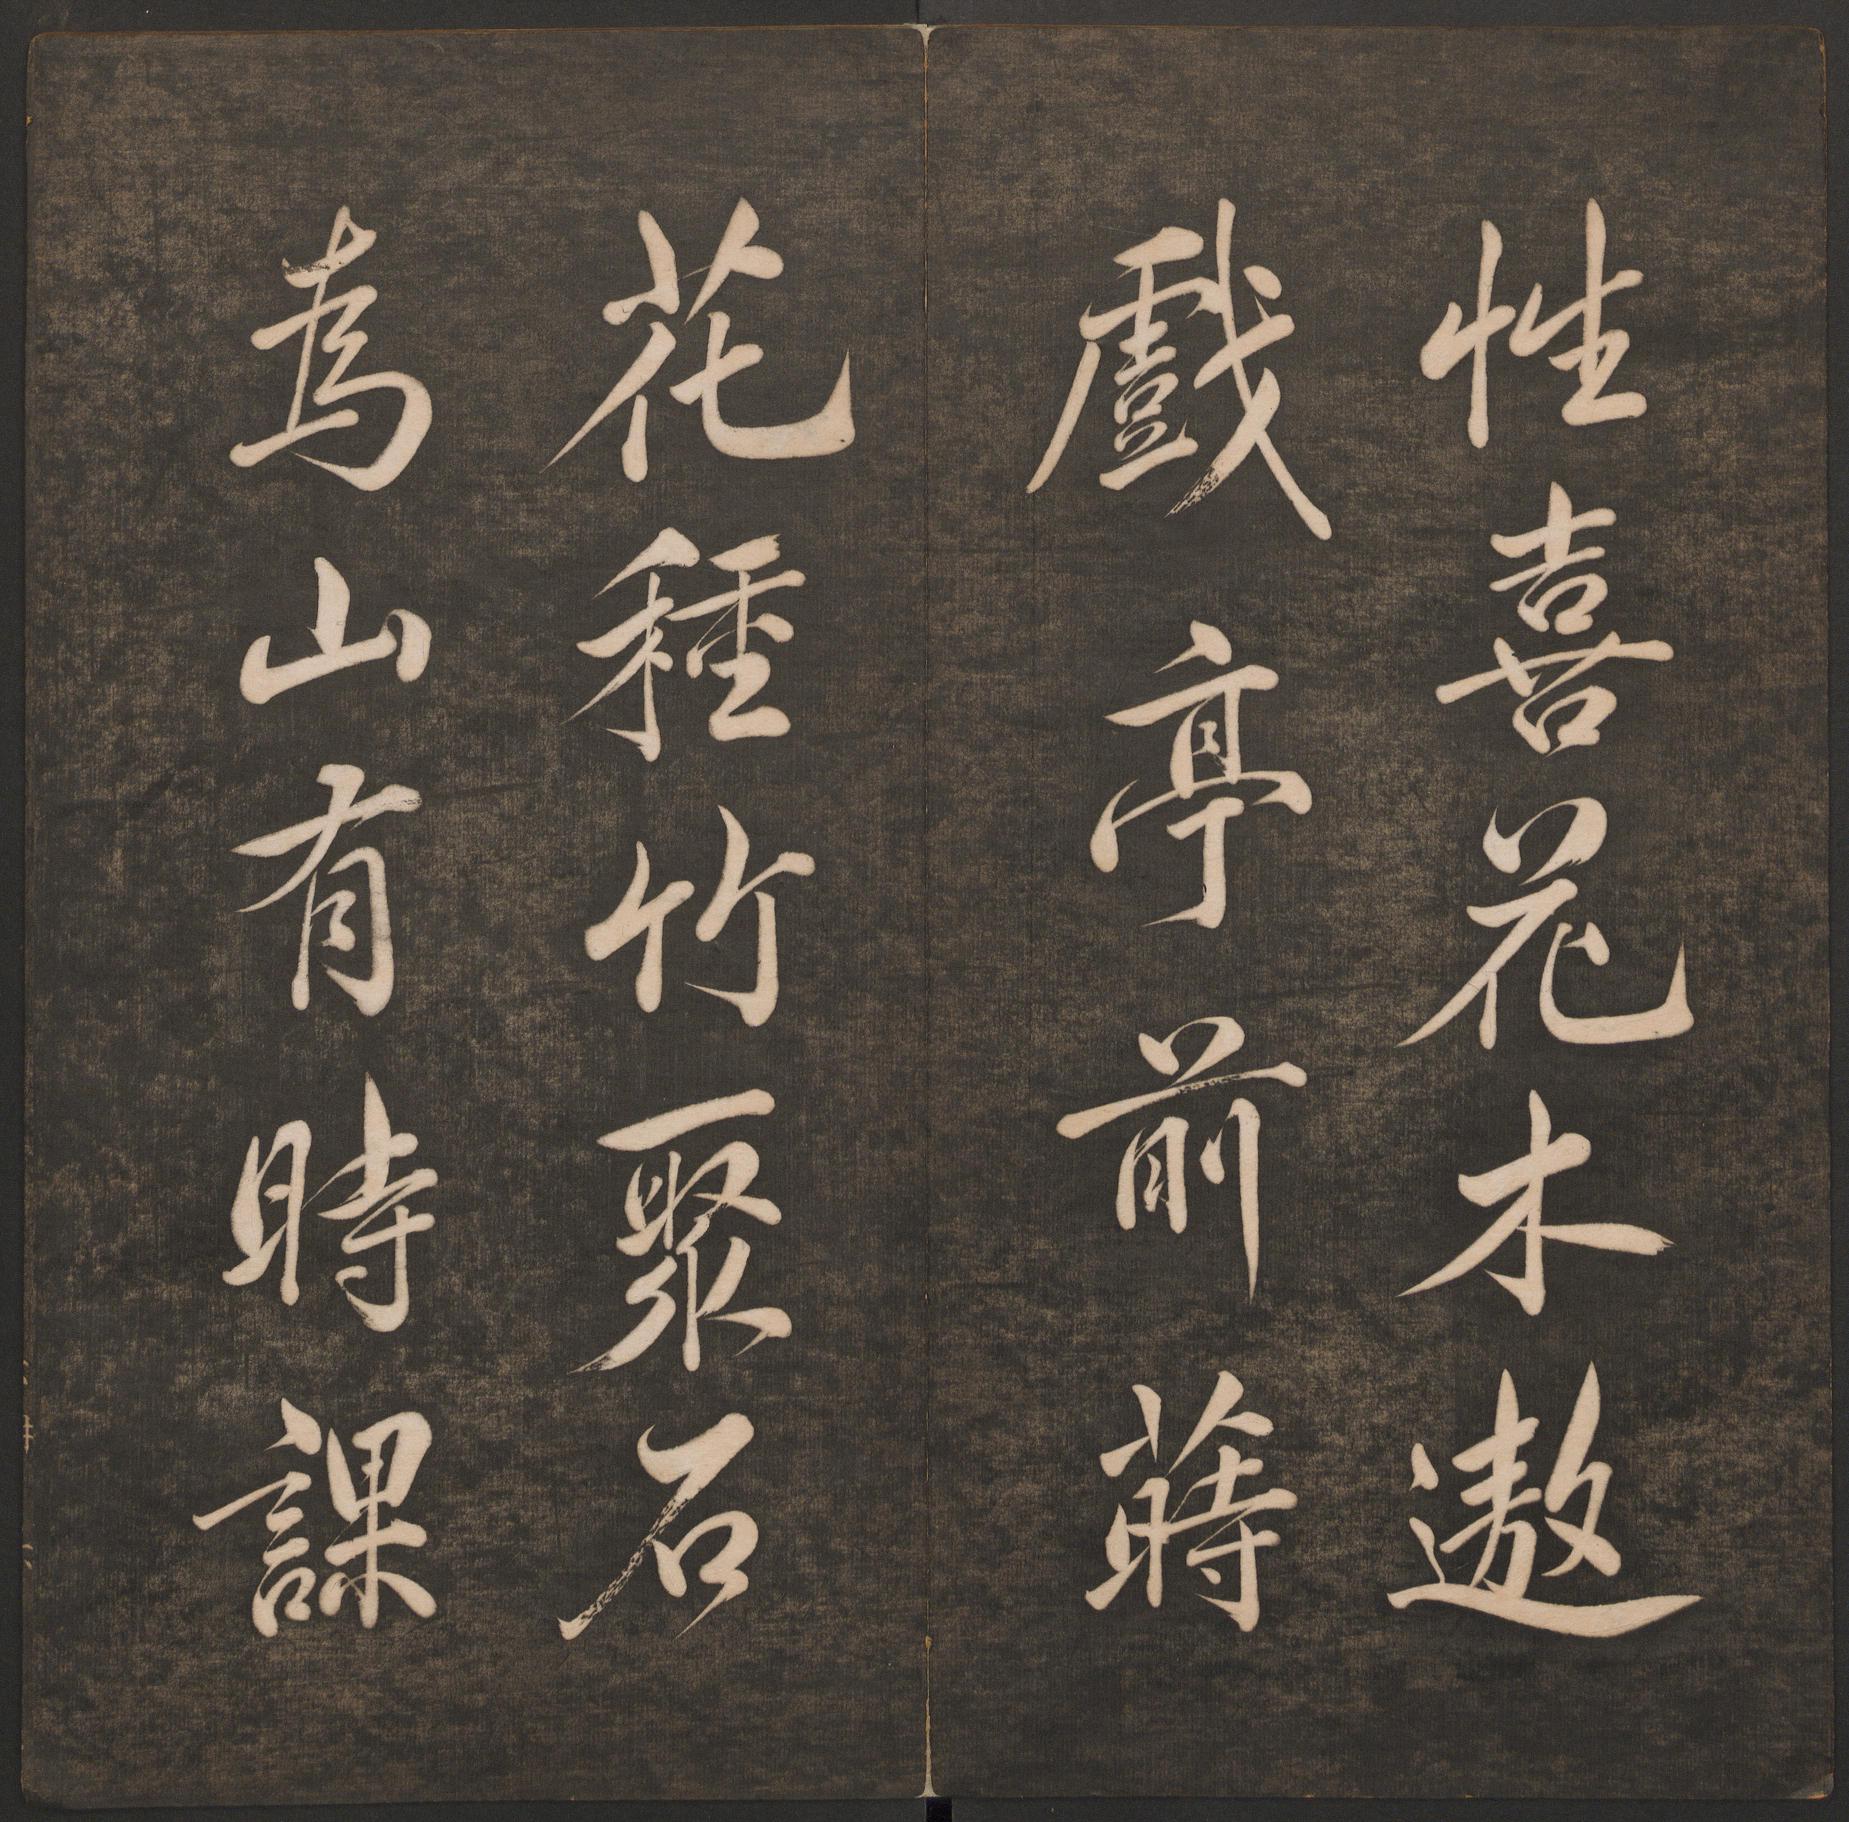 性喜花木遨
戲亭前蒔
花種竹聚石
為山有時課